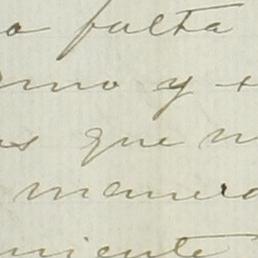 o falta
smo y
as que n
manera
miente